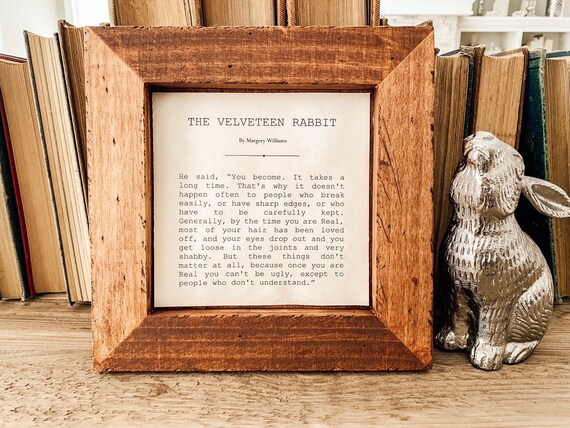 THE VELVETEEN RABBIT
By Margery Williams
He said, "You become. It takes a
long time. That's why it doesn't
happen often to people who break
easily, or have sharp edges, or who
have to be carefully kept.
Generally, by the time you are Real,
most of your hair has been loved
off, and your eyes drop out and you
get loose in the joints and very
shabby. But these things don't
matter at all, because once you are
Real you can't be ugly, except to
people who don't understand."